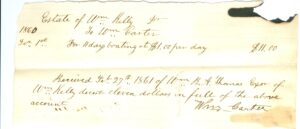 Estate of Wm Kelly Jr
To Wm Carter
1860
Jan 1st. For 11 days boating at $1.00 per day $11.00
Received Feb 27th 1861 of Wm K A Thomas Exor of
Wm Kelly decesd eleven dollars in full of the above
account
Wm Carter